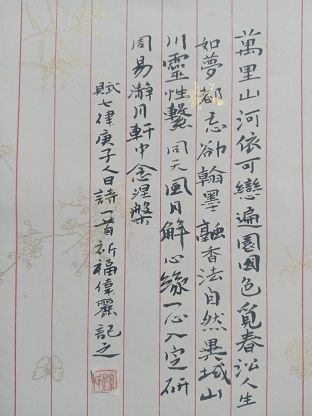 萬里山河依可戀遍園國色覓春訟人生
如夢都忘卻翰墨融香法自然異域山
川靈性繫同天風月解心緣一心入定研
周易瀞月軒中念涅槃
賦七律庚子人日詩一首祈福偉麗記之